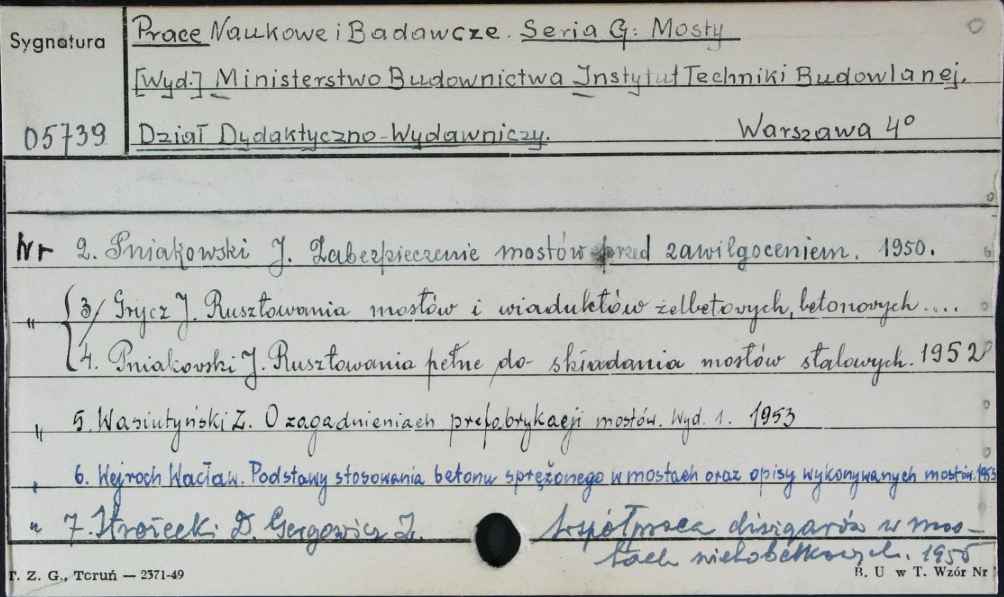 Sygnatura
Prace Naukowe i Badawcze. Seria G: Mosty
[Wyd.] Ministerstwo Budownictwa Instytut Techniki Budowlanej.
05739 Dział Dydaktyczno-Wydawniczy. Warszawa 4°
Nr 2. Pniakowski J. Zabezpieczenie mostów przed zawilgoceniem. 1950.
" 3/ Grycz J. Rusztowania mostów i wiaduktów żelbetowych, betonowych ....
4. Pniakowski J. Rusztowania pełne do składania mostów stalowych. 1952
" 5. Wasiutyński Z. O zagadnieniach prefabrykacji mostów. Wyd. 1. 1953
" 6. Wejroch Wacław. Podstawy stosowania betonu sprężonego w mostach oraz opisy wykonywanych mostów. 1953
" 7. D. Gergowicz Z. Współpraca dźwigarów w mos-
tach 1955
T. Z. G., Toruń — 2371-49 B. U w T. Wzór Nr